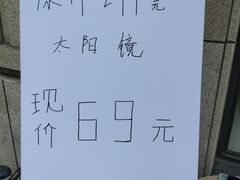 元
太阳镜
现价69元